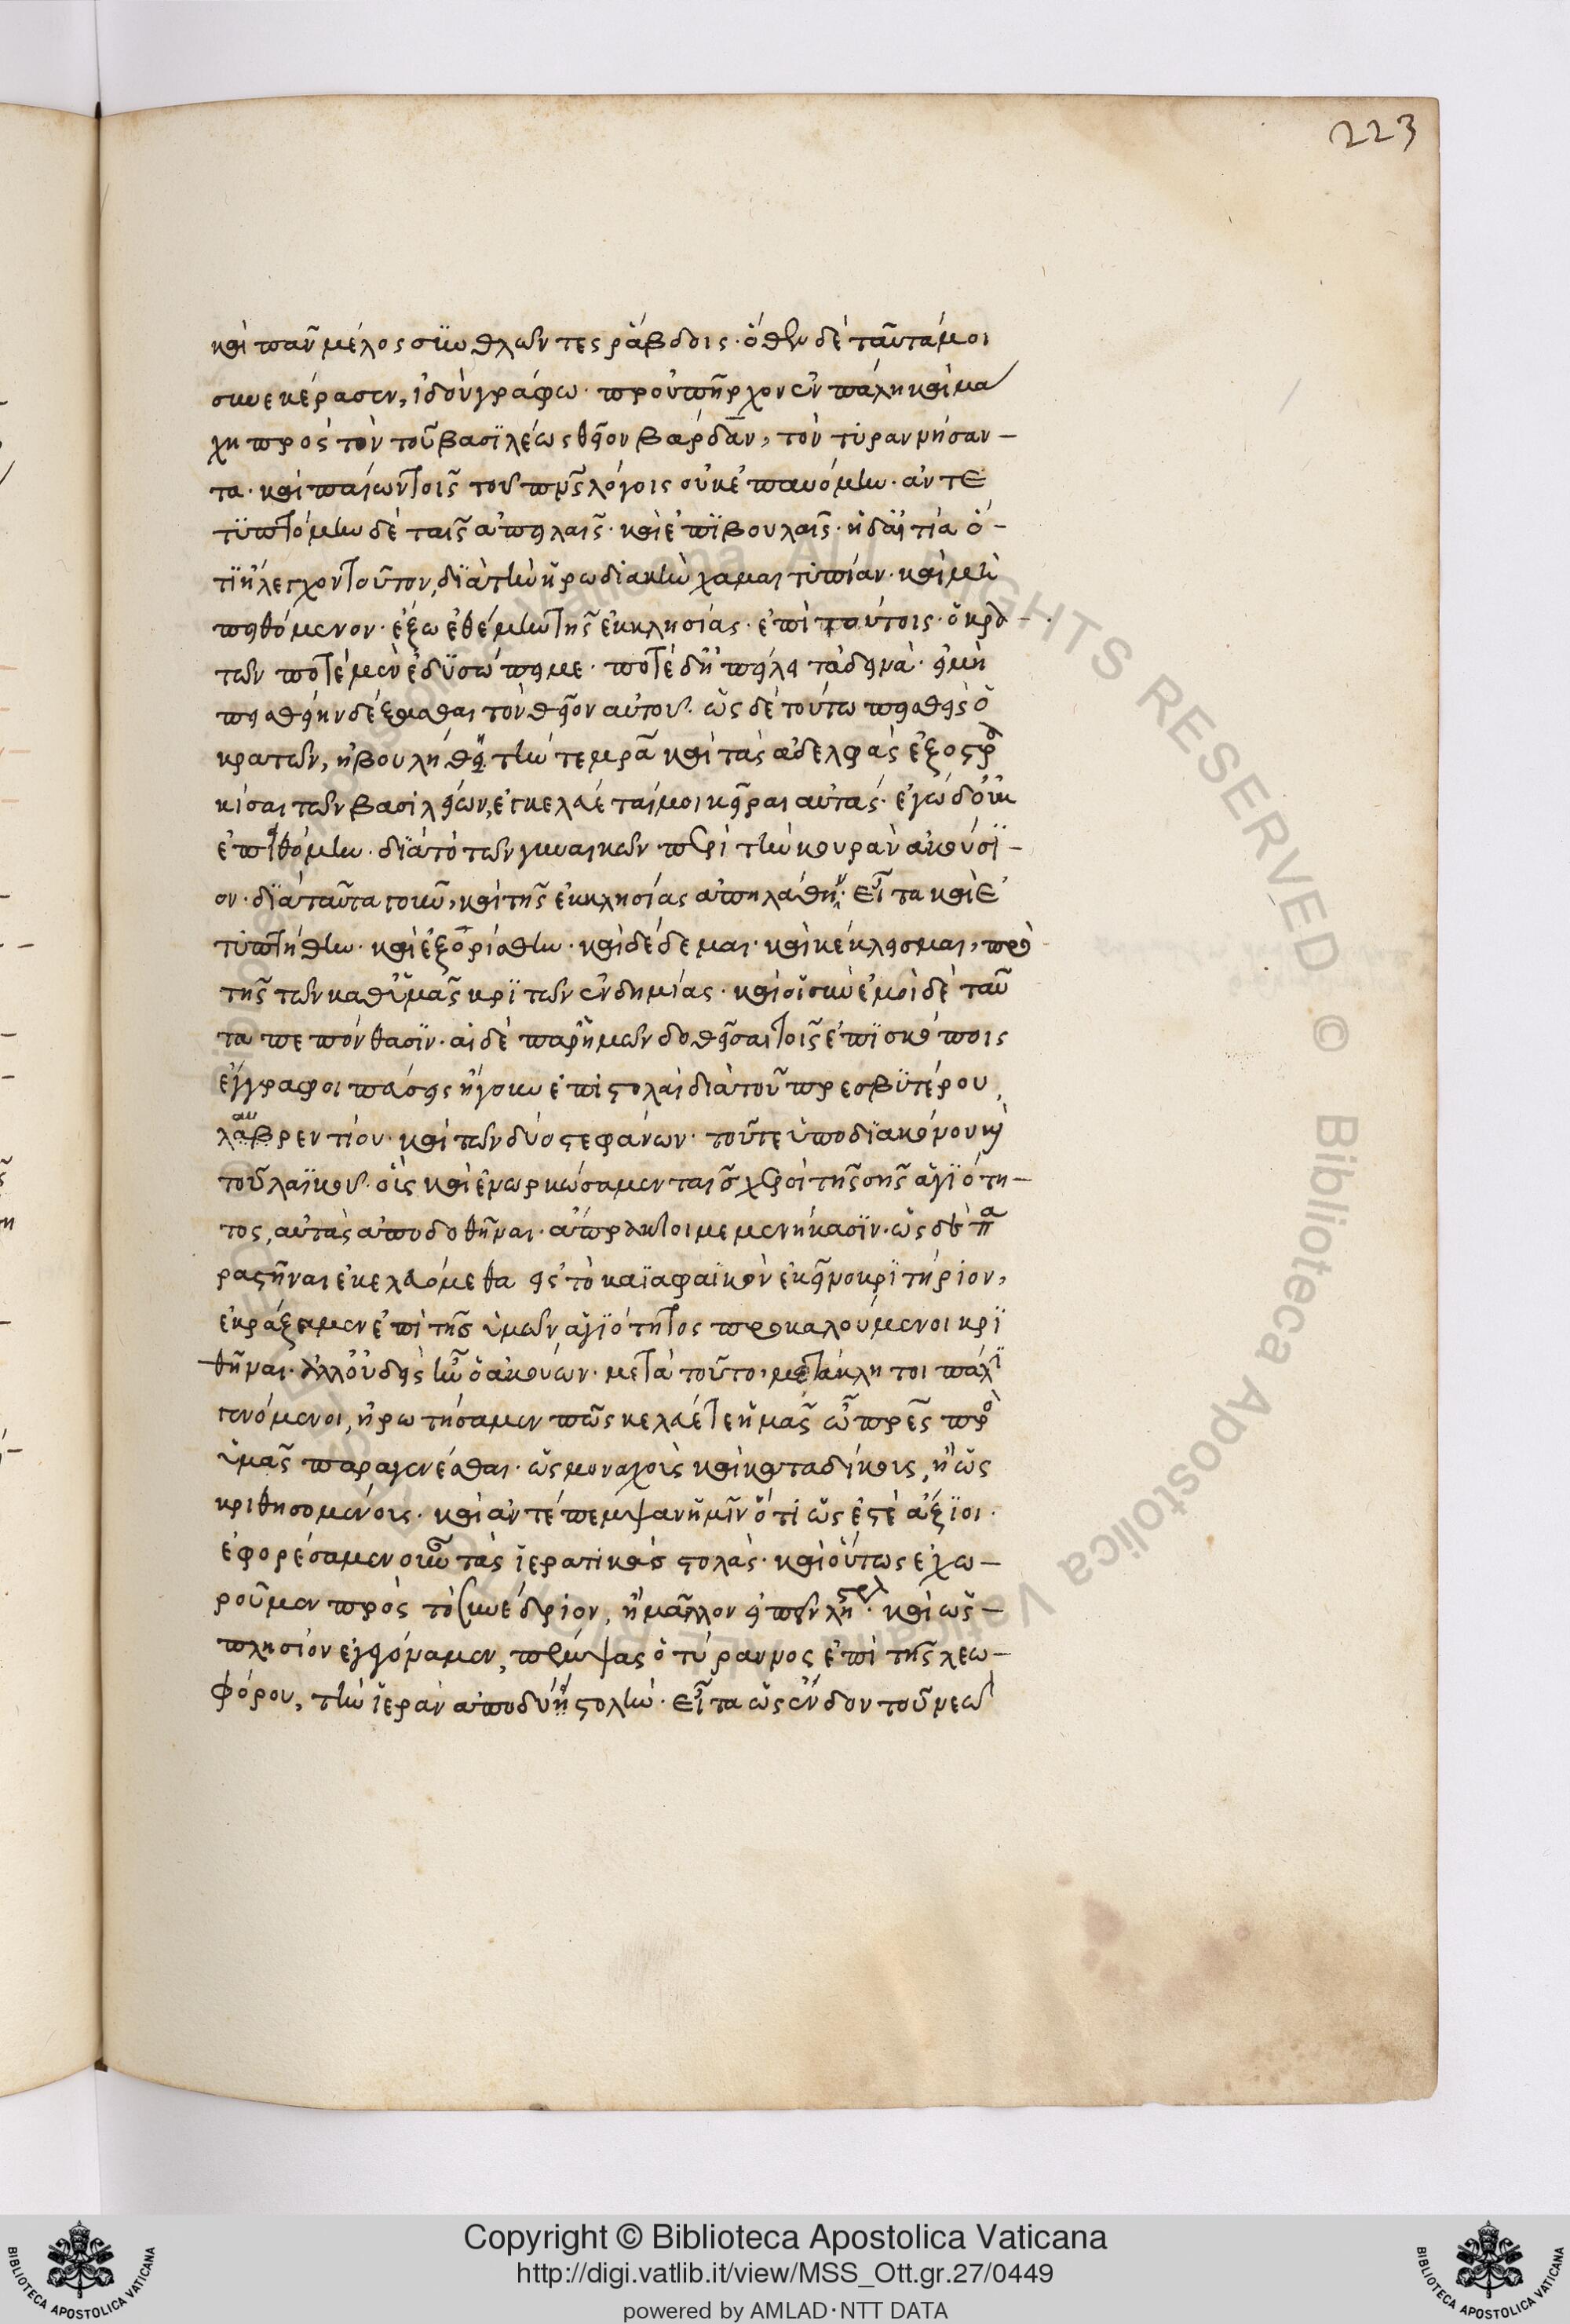 223
καὶ πᾶν μέλος συνθλῶντες ῥάβδοις· ὅθεν δὲ ταῦτά μοι
συνεκέρασεν, ἰδοὺ γράφω· προὐπῆρχον ἐν πάλη καὶ μά
χη πρὸς τὸν τοῦ βασϊλέως θεῖον βάρδαν, τὸν τυραννήσαν-
τα· καὶ παίων τοῖς τοῦ πνς λόγοις οὐκ ἐπαυόμην· ἀντε
τϋπτόμην δὲ ταῖς ἀπειλαῖς· καὶ ἐπϊβουλαῖς· ἡ δ' αἰτία ὅ-
τϊ ἤλεγχον τοῦτον, δϊὰ τὴν ἡρωδιακὴν χαμαιτυπίαν· καὶ μὴ
πειθόμενον· ἔξω ἐθέμην τῆς ἐκκλησίας· ἐπὶ τούτοις· ὁ κρα-
τῶν ποτὲ μὲν ἐδϋσώπει με· ποτὲ δὴ ἠπείλει τὰ δεινὰ· εἰ μὴ
πεισθείην δέξασθαι τὸν θεῖον αὐτοῦ· ὡς δὲ τούτω πεισθεὶς ὁ
κρατῶν, ἠβουλήθη τήν τε μρα καὶ τὰς ἀδελφὰς ἐξοστρα
κίσαι τῶν βασιλείων, ἐγκελεύεταί μοι κεῖραι αὐτάς· ἐγὼ δ' οὐκ
ἐπειθόμην· δϊὰ τὸ τῶν γυναικῶν περὶ τὴν κουρὰν ἀκούσϊ-
ον· δϊὰ ταῦτα τοίνυν, καὶ τῆς ἐκκλησίας ἀπηλάθην· εἶτα καὶ ἐ
τυπτήθην· καὶ ἐξορίσθην· καὶ δέδεμαι· καὶ κέκλεισμαι, πρὸ
τῆς τῶν καθ' ὑμᾶς κρϊτῶν ἐνδημίας· καὶ οἱ σὺν ἐμοὶ δὲ ταῦ
τα πεπόνθασϊν· αἱ δὲ παρ' ἡμῶν δοθεῖσαι τοῖς ἐπϊσκόποις
ἔγγραφοι πάσεις ἤγουν ἐπιστολαὶ διὰ τοῦ πρεσβϋτέρου,
λαβρεντίου· καὶ τῶν δύο στεφάνων· τοῦ τε ὑποδϊακόνου καὶ
τοῦ λαϊκοῦ· οἷς καὶ ἐνωρκώσαμεν ταῖς χερσὶ τῆς σῆς ἁγϊότη-
τος, αὐτὰς ἀποδοθῆναι· ἄπρακτοι μεμενήκασϊν· ὡς δὲ πα
ραστῆναι ἐκελευόμεθα εἰς τὸ καϊαφαϊκὸν ἐκεῖνο κρϊτήριον,
ἐκράξαμεν ἐπὶ τῆς ὑμῶν ἁγϊότητος προκαλούμενοι κρϊ
θῆναι· ἀλλ' οὐδεὶς ἦν ὁ ἀκούων· μετὰ τοῦτο, μετάκλητοι πάλϊ
γενόμενοι, ἠρωτήσαμεν πῶς κελεύετε ἡμᾶς ὦ πρες πρὸ
ὑμᾶς παραγενέσθαι· ὡς μοναχοὺς καὶ καταδίκους, ἢ ὡς
κριθησομένους· καὶ ἀντέπεμψαν ἡμῖν ὅτι ὡς ἐστὲ ἄξϊοι·
ἐφορέσαμεν οὖν τὰς ἱερατικὰς στολὰς· καὶ οὕτως ἐχω-
ροῦμεν πρὸς τὸ συνέδριον, ἢ μᾶλλον εἰπεῖν λῃστεῖ· καὶ ὡς-
πλησίον ἐγεγόναμεν, πέμψας ὁ τύραννος ἐπὶ τῆς λεω-
φόρου, τὴν ἱερὰν ἀποδύει στολὴν· εἶτα ὡς ἔνδον τοῦ νεὼ
Copyright © Biblioteca Apostolica Vaticana
http://digi.vatlib.it/view/MSS_Ott.gr.27/0449
powered by AMLAD·NTT DATA